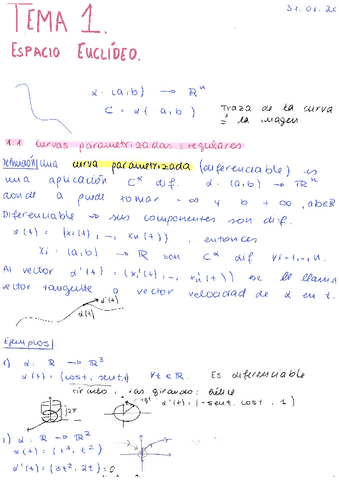 TEMA 1.
ESPACIO EUCLÍDEO.
α: (a,b) → ℝⁿ
C = α( a, b)
Traza de la curva
= la imagen
1.1 curvas parametrizadas regulares
Definición| una curva parametrizada (diferenciable) es
una aplicación C^∞ dif. α: (a,b) → ℝⁿ
donde a puede tomar -∞ y b +∞, a,b∈ℝ
Diferenciable → sus componentes son dif.
α(t) = (x₁(t), ..., xₙ(t)), entonces
xᵢ: (a,b) → ℝ son C^∞ dif ∀i=1,..,n.
Al vector α'(t) = (x₁'(t), .., xₙ'(t)) se le llama
vector tangente o vector velocidad de α en t.
α'(t)
α(t)
Ejemplos|
1) α: ℝ → ℝ³
α(t) = (cost, sent, t) ∀t∈ℝ. Es diferenciable
girando: hélice
2π
α'(t) = (-sent, cost, 1)
2) α: ℝ → ℝ²
α(t) = (t³, t²)
α'(t) = (3t², 2t) = 0